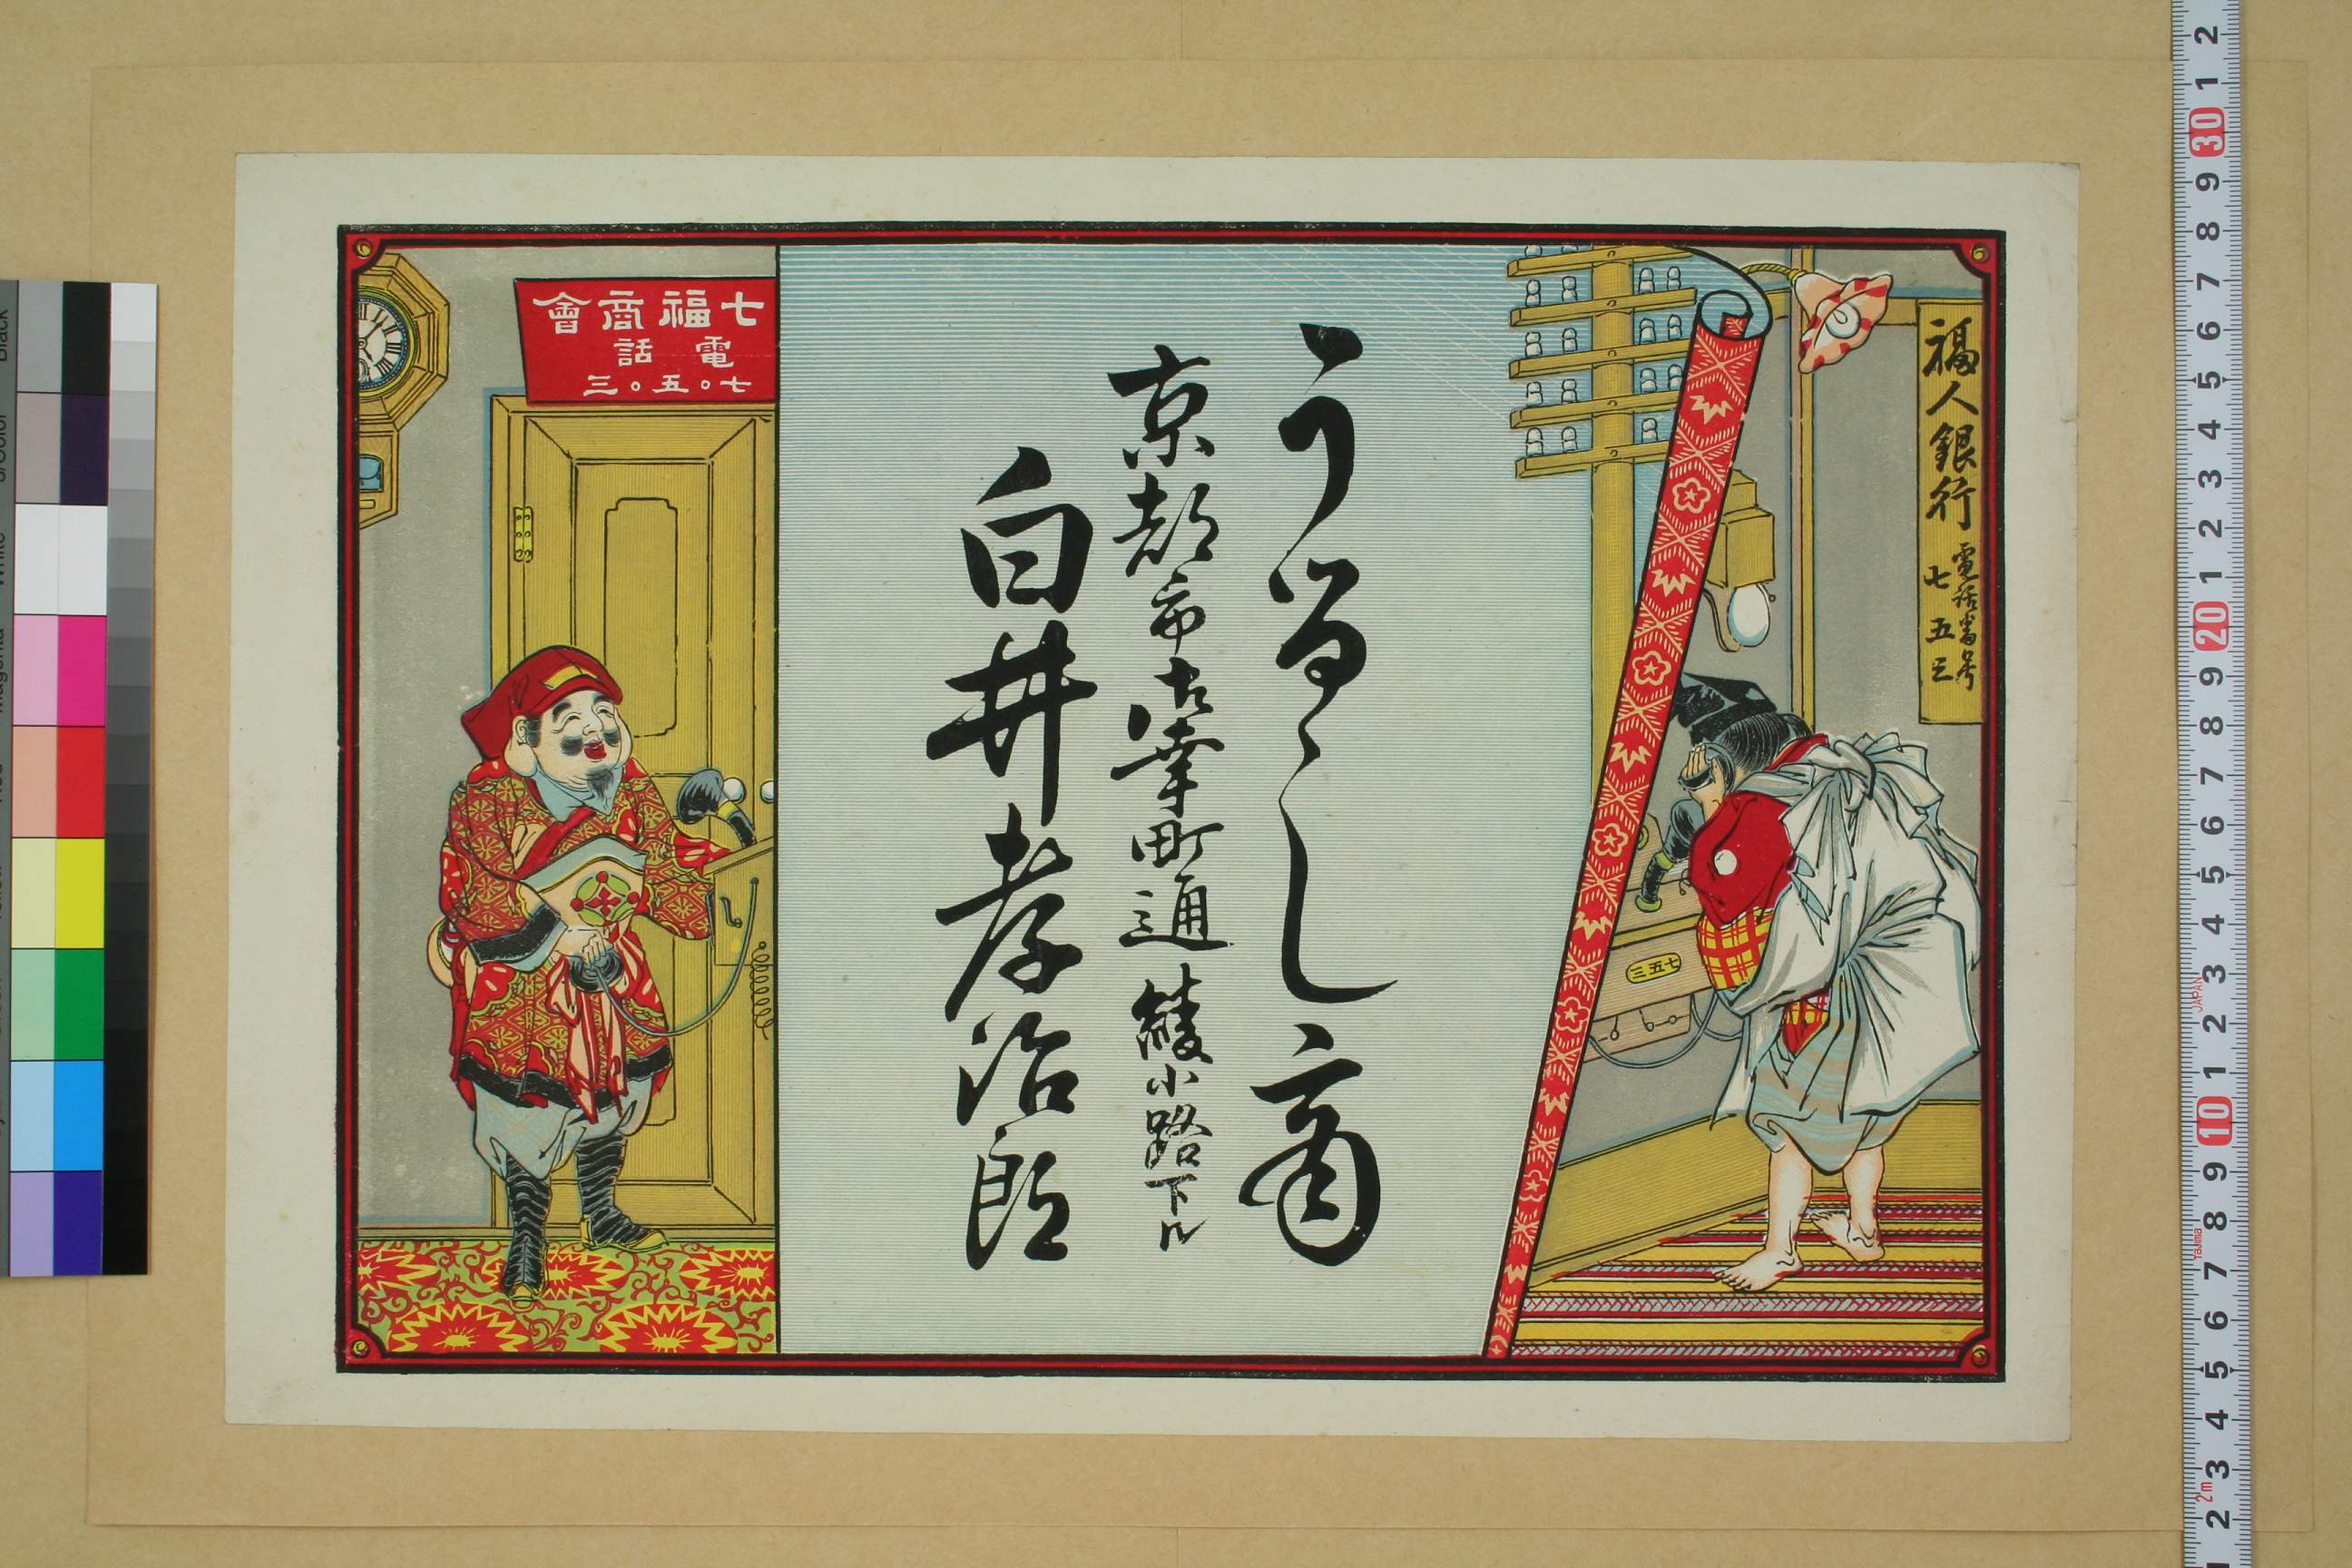 福人銀行
電話番号
七五三
うるし商
京都市御幸町通綾小路下ル
白井孝治郎
七福商會
電話
七〇五〇三
七五三